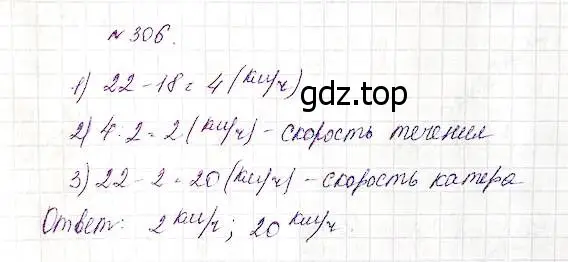 № 306.
1) 22 - 18 = 4 (км/ч)
gdz.top
2) 4 : 2 = 2 (км/ч) - скорость течения
3) 22 - 2 = 20 (км/ч) - скорость катера
Ответ: 2 км/ч; 20 км/ч.